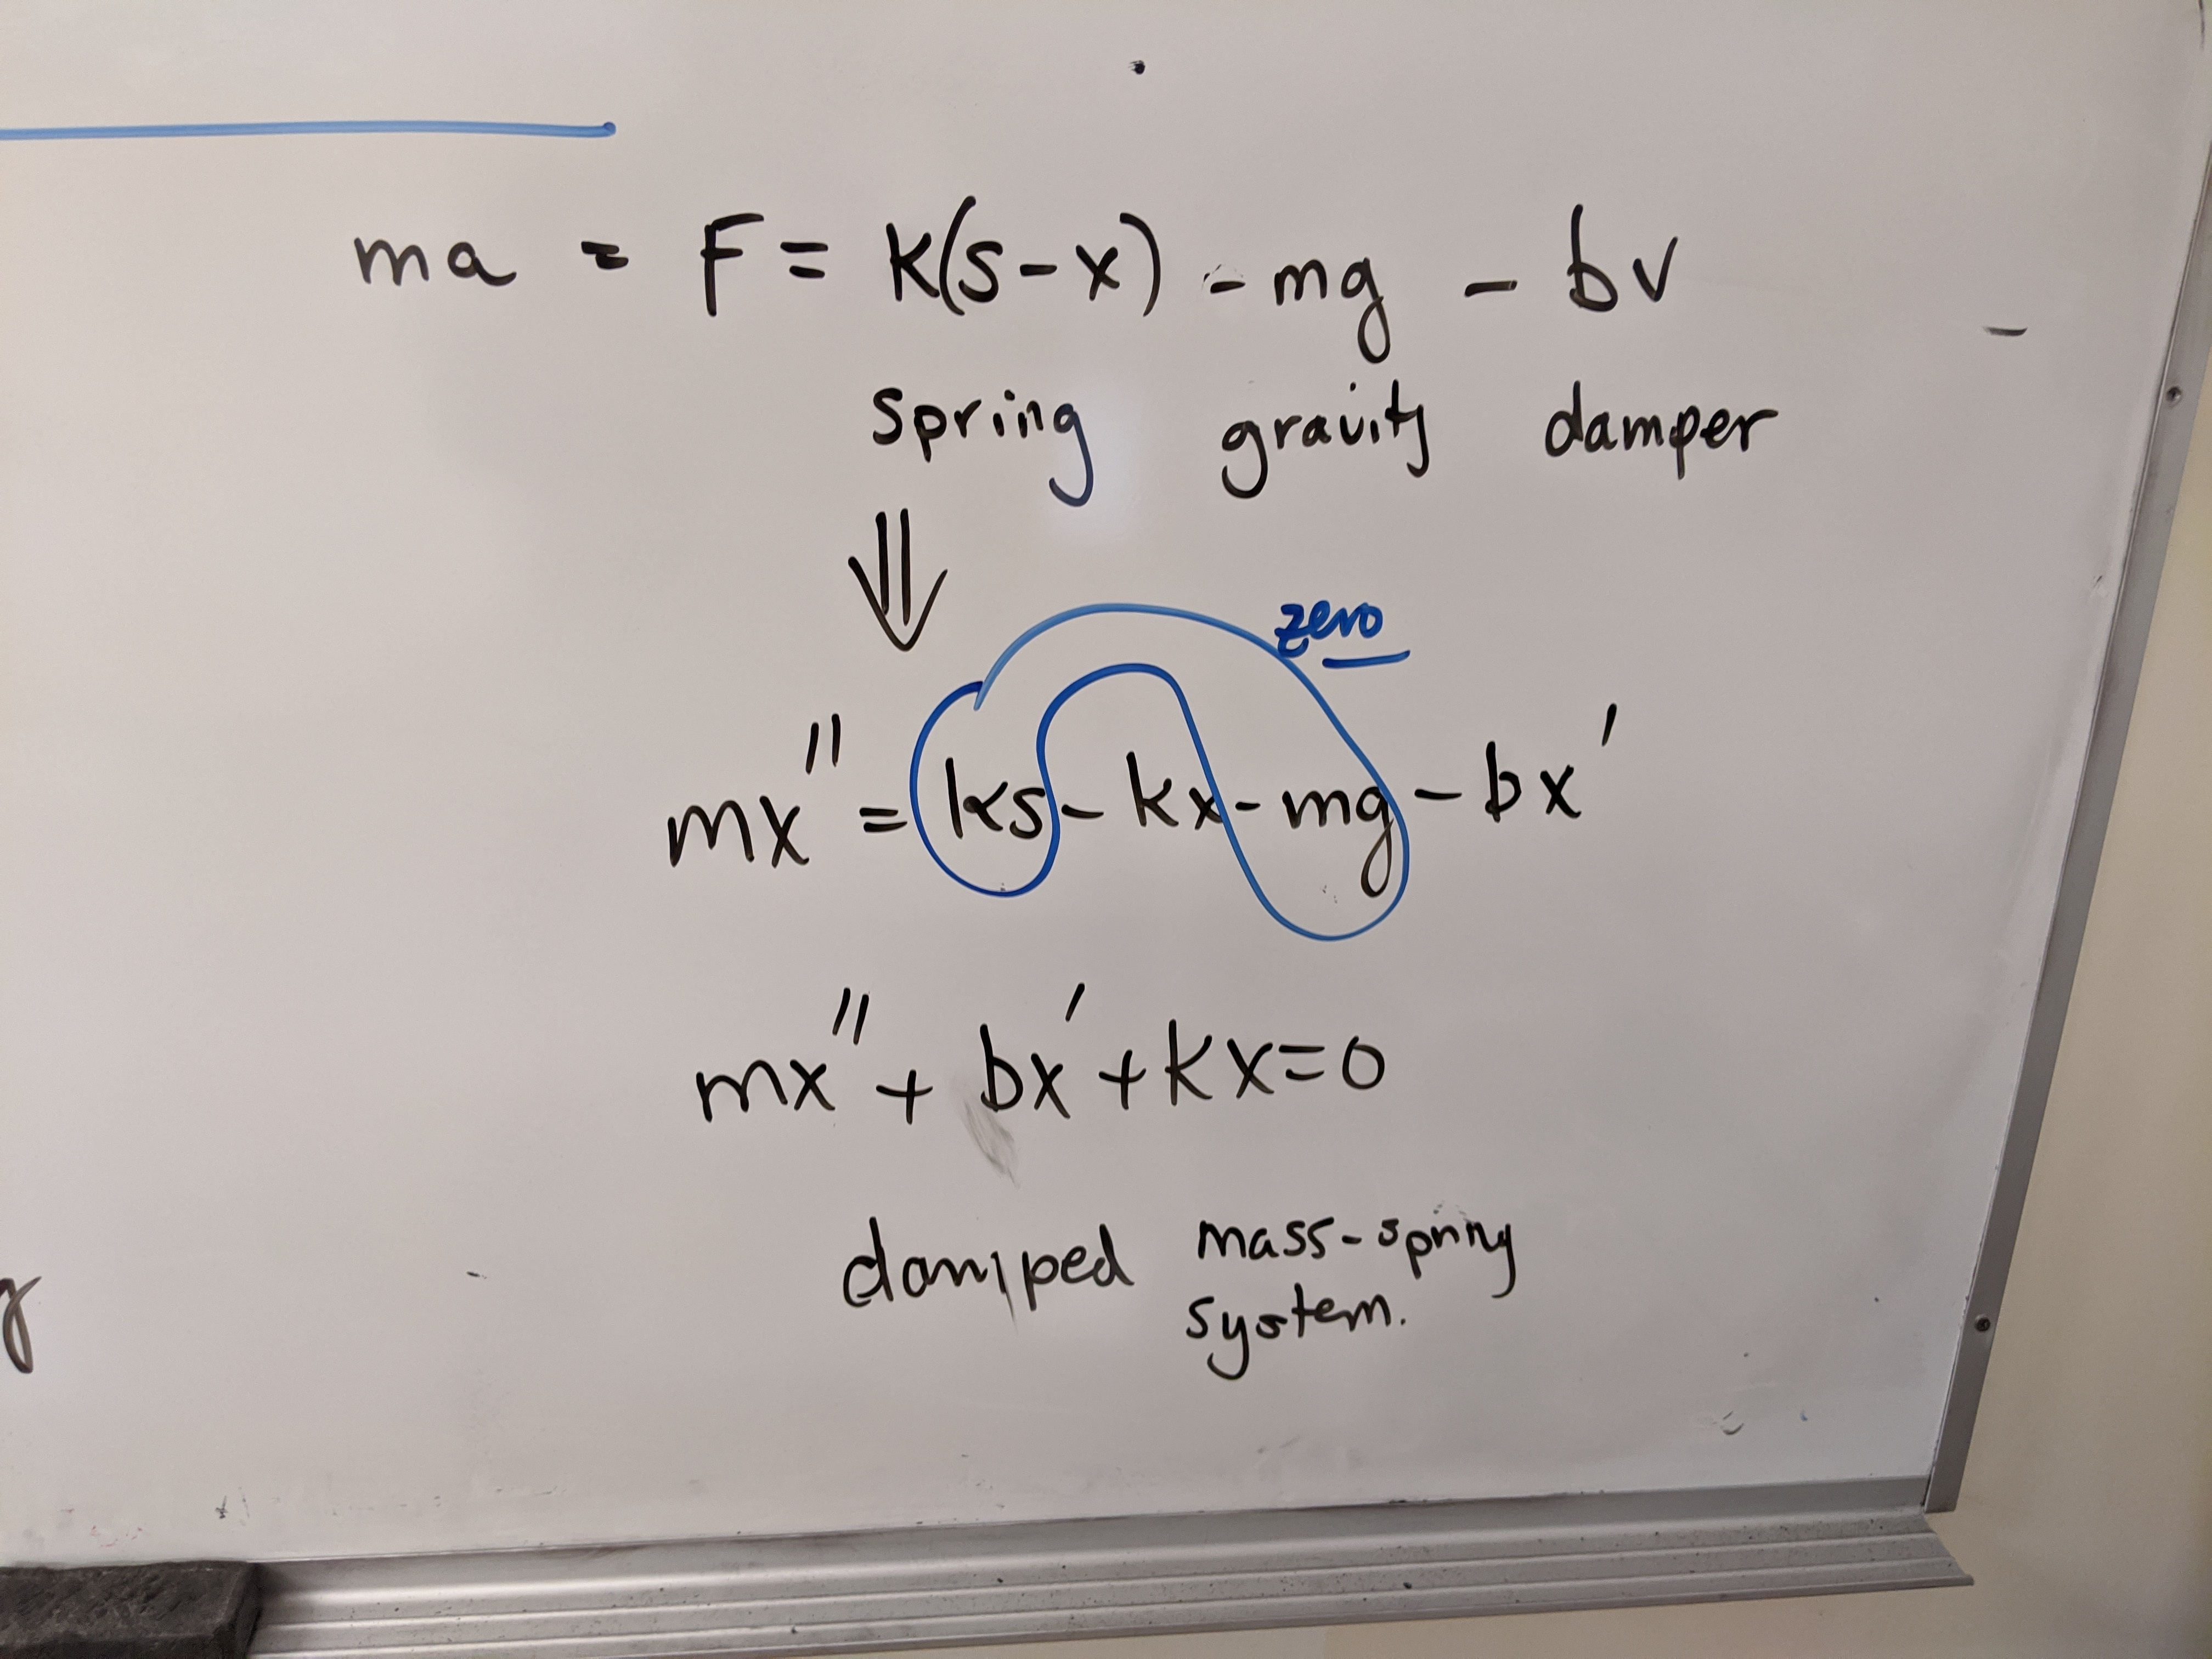 ma = F = k(s-x) - mg - bv
spring gravity damper
⇓
zero
mx'' = ks - kx - mg - bx'
mx'' + bx' + kx = 0
damped mass-spring
system.